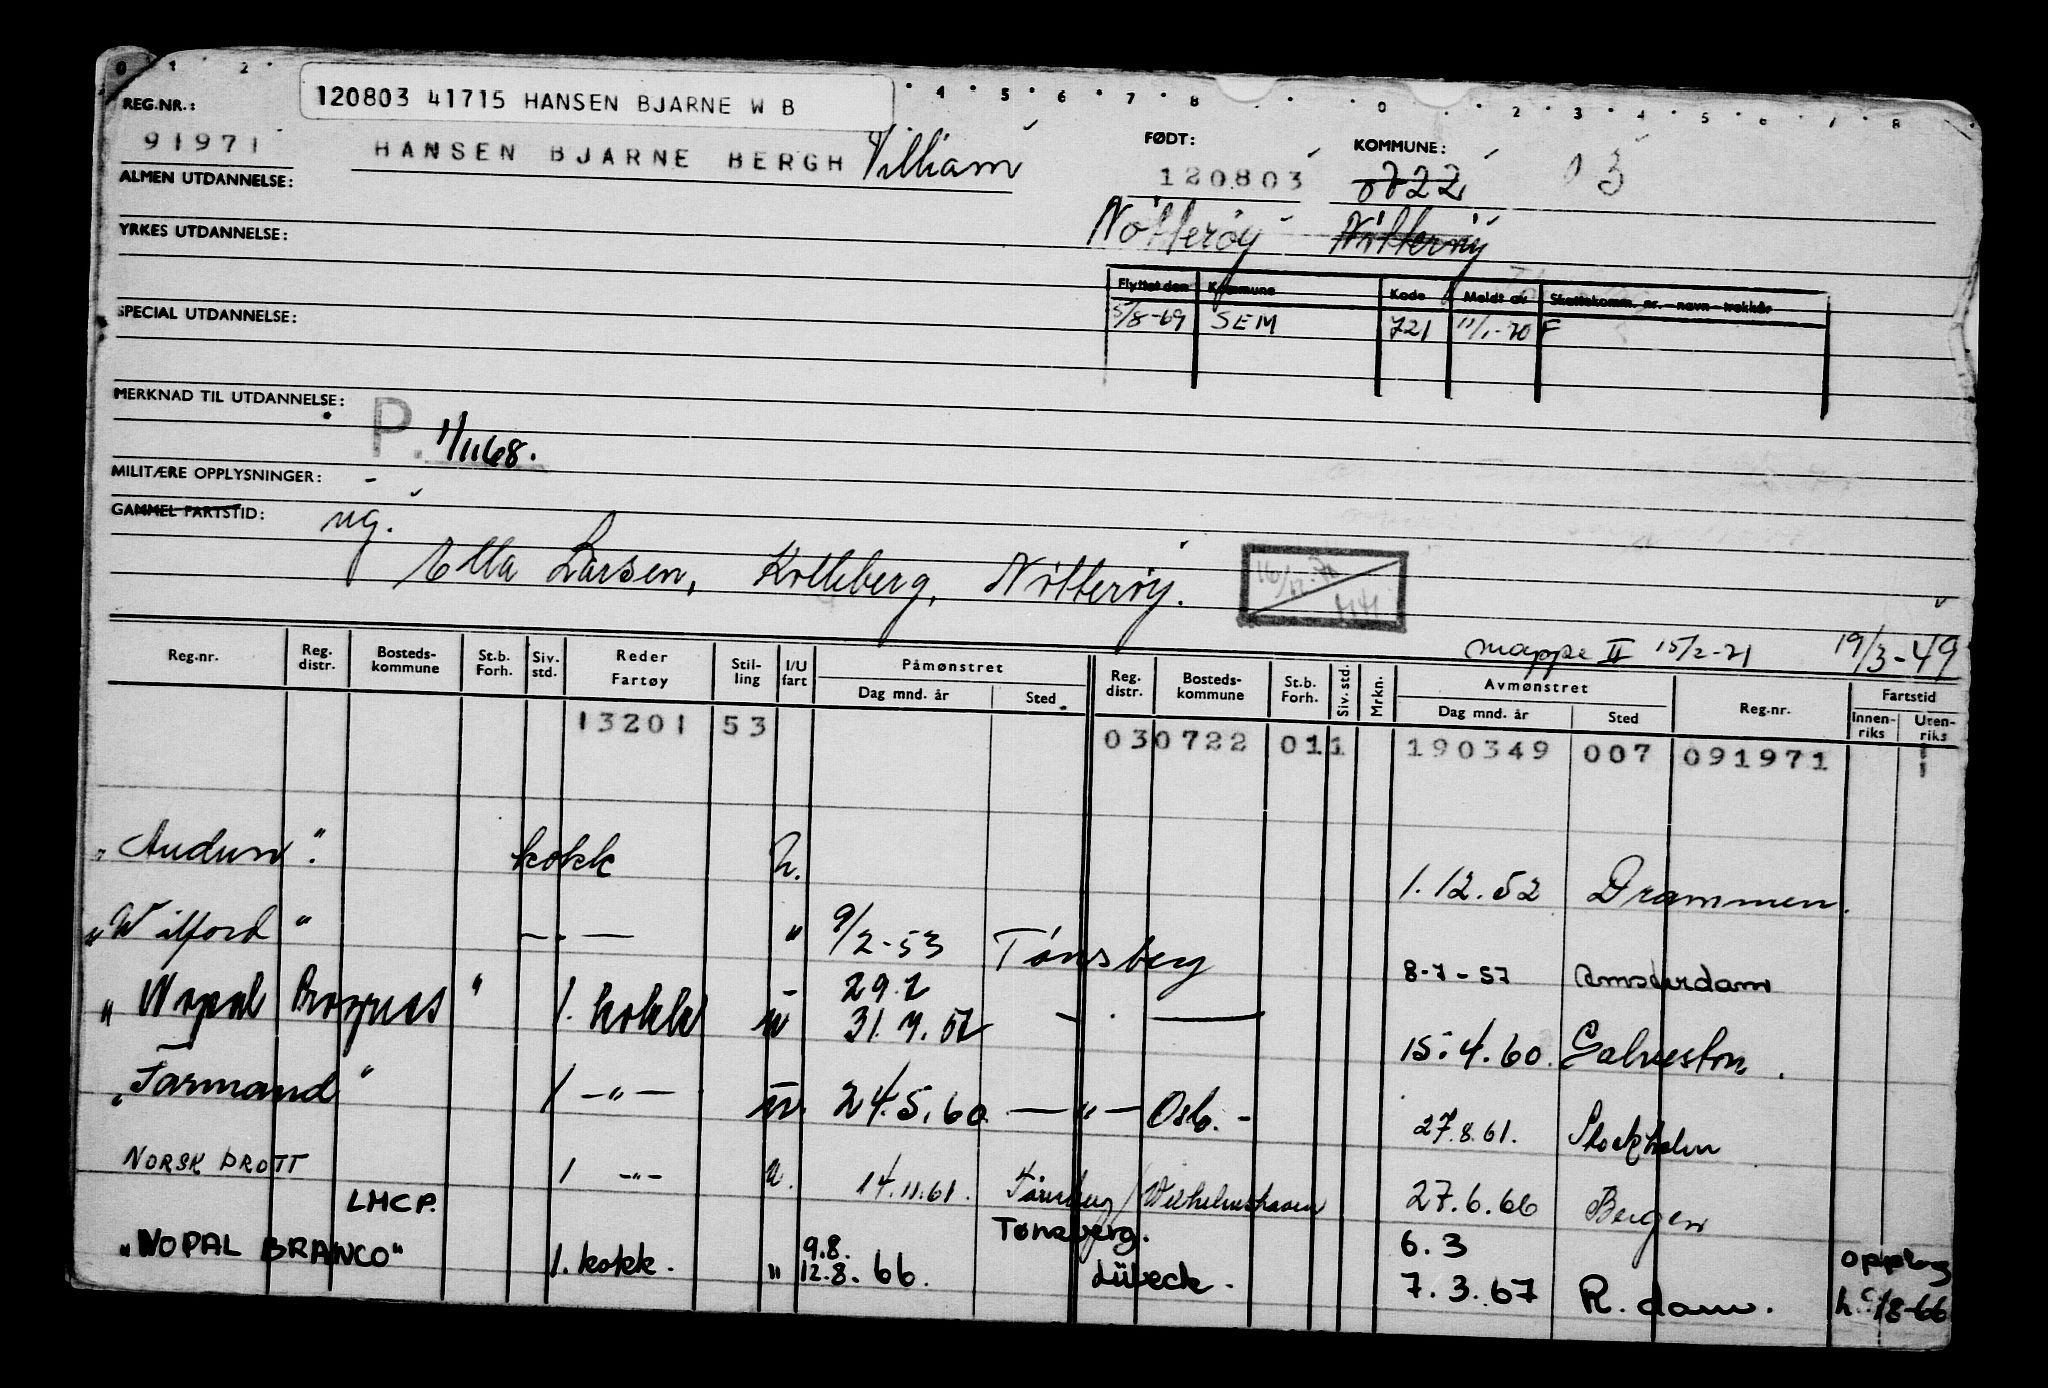 0 1 2 4 5 6 7 8 0 2 3 4 5 6 7 8
120803 41715 HANSEN BJARNE W B
REG.NR.: 91971 HANSEN BJARNE BERGH Villiam FØDT: 120803 KOMMUNE: 0722 03
ALMEN UTDANNELSE:
Nötterøy Nötterøy
YRKES UTDANNELSE:
Flyttet den Kommune Kode Meldt av Skattekomm. nr. - navn - trekkår
5/8-69 SEM 721 11/1-70 F
SPECIAL UTDANNELSE:
MERKNAD TIL UTDANNELSE: P. 1/1168.
MILITÆRE OPPLYSNINGER: -
GAMMEL FARTSTID: ug.
Ella Larsen, Kolleberg, Nötterøy.
mappe II 15/2-71 19/3-49
Reg.nr. Reg. distr. Bosteds-kommune St.b. Forh. Siv. std. Reder Fartøy Stil-ling I/U fart Påmønstret Dag mnd. år Sted Reg. distr. Bosteds-kommune St.b. Forh. Siv. std. Mrkn. Avmønstret Dag mnd. år Sted Reg.nr. Fartstid Innen-riks Uten-riks
13201 53 030722 011 190349 007 091971
"Audun". kokk u. 1.12.52 Drammen.
"Wilford" -.- " 9/2-53 Tønsberg 8-7-57 Amsterdam
29.7
"Nopal Progress" 1. kokk u 31.7.57 - . - 15.4.60. Galveston.
"Farmand" 1 -"- u. 24.5.60 -"- Osb.- 27.8.61. Stockholm
NORSK DROTT 1 -"- u. 14.11.61. Tønsberg/Wilhelmshaven 27.6.66 Bergen
LHCP. Tønsberg.
"NOPAL BRANCO" 1. kokk. " 9.8. 12.8.66. Lübeck. 6.3 7.3.67 R.dam. opplag